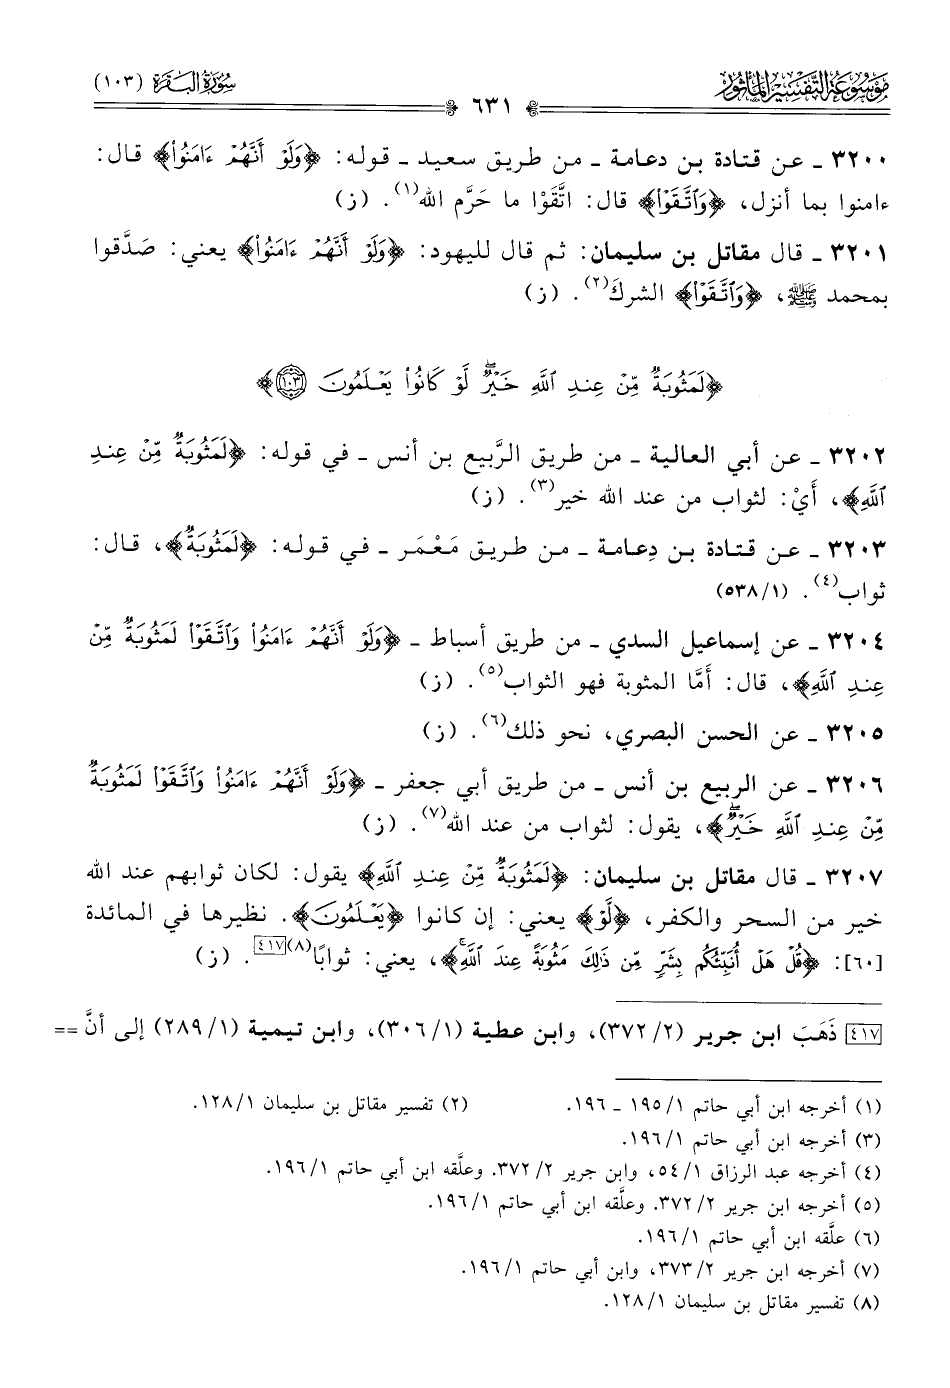 مَوْسُوعَة التَّفْسِيْر المَأْثُور
سُورَةُ البَقَرَةِ (١٠٣)
٦٣١
٣٢٠٠ ـ عن قتادة بن دعامة ـ من طريق سعيد ـ قوله: ﴿وَلَوْ أَنَّهُمْ ءَامَنُواْ﴾ قال:
ءامنوا بما أنزل، ﴿وَٱتَّقَوْاْ﴾ قال: اتَّقَوْا ما حَرَّم الله(١). (ز)
٣٢٠١ ـ قال مقاتل بن سليمان: ثم قال لليهود: ﴿وَلَوْ أَنَّهُمْ ءَامَنُواْ﴾ يعني: صَدَّقوا
بمحمد ﷺ، ﴿وَٱتَّقَوْاْ﴾ الشركَ(٢). (ز)
﴿لَمَثُوبَةٌ مِّنْ عِندِ ٱللَّهِ خَيْرٌ ۖ لَّوْ كَانُواْ يَعْلَمُونَ ١٠٣﴾
٣٢٠٢ ـ عن أبي العالية ـ من طريق الرَّبيع بن أنس ـ في قوله: ﴿لَمَثُوبَةٌ مِّنْ عِندِ
ٱللَّهِ﴾، أَيْ: لثواب من عند الله خير(٣). (ز)
٣٢٠٣ ـ عن قتادة بن دِعامة ـ من طريق مَعْمَر ـ في قوله: ﴿لَمَثُوبَةٌ﴾، قال:
ثواب(٤). (٥٣٨/١)
٣٢٠٤ ـ عن إسماعيل السدي ـ من طريق أسباط ـ ﴿وَلَوْ أَنَّهُمْ ءَامَنُواْ وَٱتَّقَوْاْ لَمَثُوبَةٌ مِّنْ
عِندِ ٱللَّهِ﴾، قال: أَمَّا المثوبة فهو الثواب(٥). (ز)
٣٢٠٥ ـ عن الحسن البصري، نحو ذلك(٦). (ز)
٣٢٠٦ ـ عن الربيع بن أنس ـ من طريق أبي جعفر ـ ﴿وَلَوْ أَنَّهُمْ ءَامَنُواْ وَٱتَّقَوْاْ لَمَثُوبَةٌ
مِّنْ عِندِ ٱللَّهِ خَيْرٌ ۖ﴾، يقول: لثواب من عند الله(٧). (ز)
٣٢٠٧ ـ قال مقاتل بن سليمان: ﴿لَمَثُوبَةٌ مِّنْ عِندِ ٱللَّهِ﴾ يقول: لكان ثوابهم عند الله
خير من السحر والكفر، ﴿لَّوْ﴾ يعني: إن كانوا ﴿يَعْلَمُونَ﴾. نظيرها في المائدة
[٦٠]: ﴿قُلْ هَلْ أُنَبِّئُكُم بِشَرٍّ مِّن ذَٰلِكَ مَثُوبَةً عِندَ ٱللَّهِ ۚ﴾، يعني: ثوابًا(٨)[٤١٧]. (ز)
[٤١٧] ذَهَبَ ابن جرير (٣٧٢/٢)، وابن عطية (٣٠٦/١)، وابن تيمية (٢٨٩/١) إلى أنَّ ==
(١) أخرجه ابن أبي حاتم ١٩٥/١ ـ ١٩٦. (٢) تفسير مقاتل بن سليمان ١٢٨/١.
(٣) أخرجه ابن أبي حاتم ١٩٦/١.
(٤) أخرجه عبد الرزاق ٥٤/١، وابن جرير ٣٧٢/٢. وعلَّقه ابن أبي حاتم ١٩٦/١.
(٥) أخرجه ابن جرير ٣٧٢/٢. وعلَّقه ابن أبي حاتم ١٩٦/١.
(٦) علَّقه ابن أبي حاتم ١٩٦/١.
(٧) أخرجه ابن جرير ٣٧٣/٢، وابن أبي حاتم ١٩٦/١.
(٨) تفسير مقاتل بن سليمان ١٢٨/١.